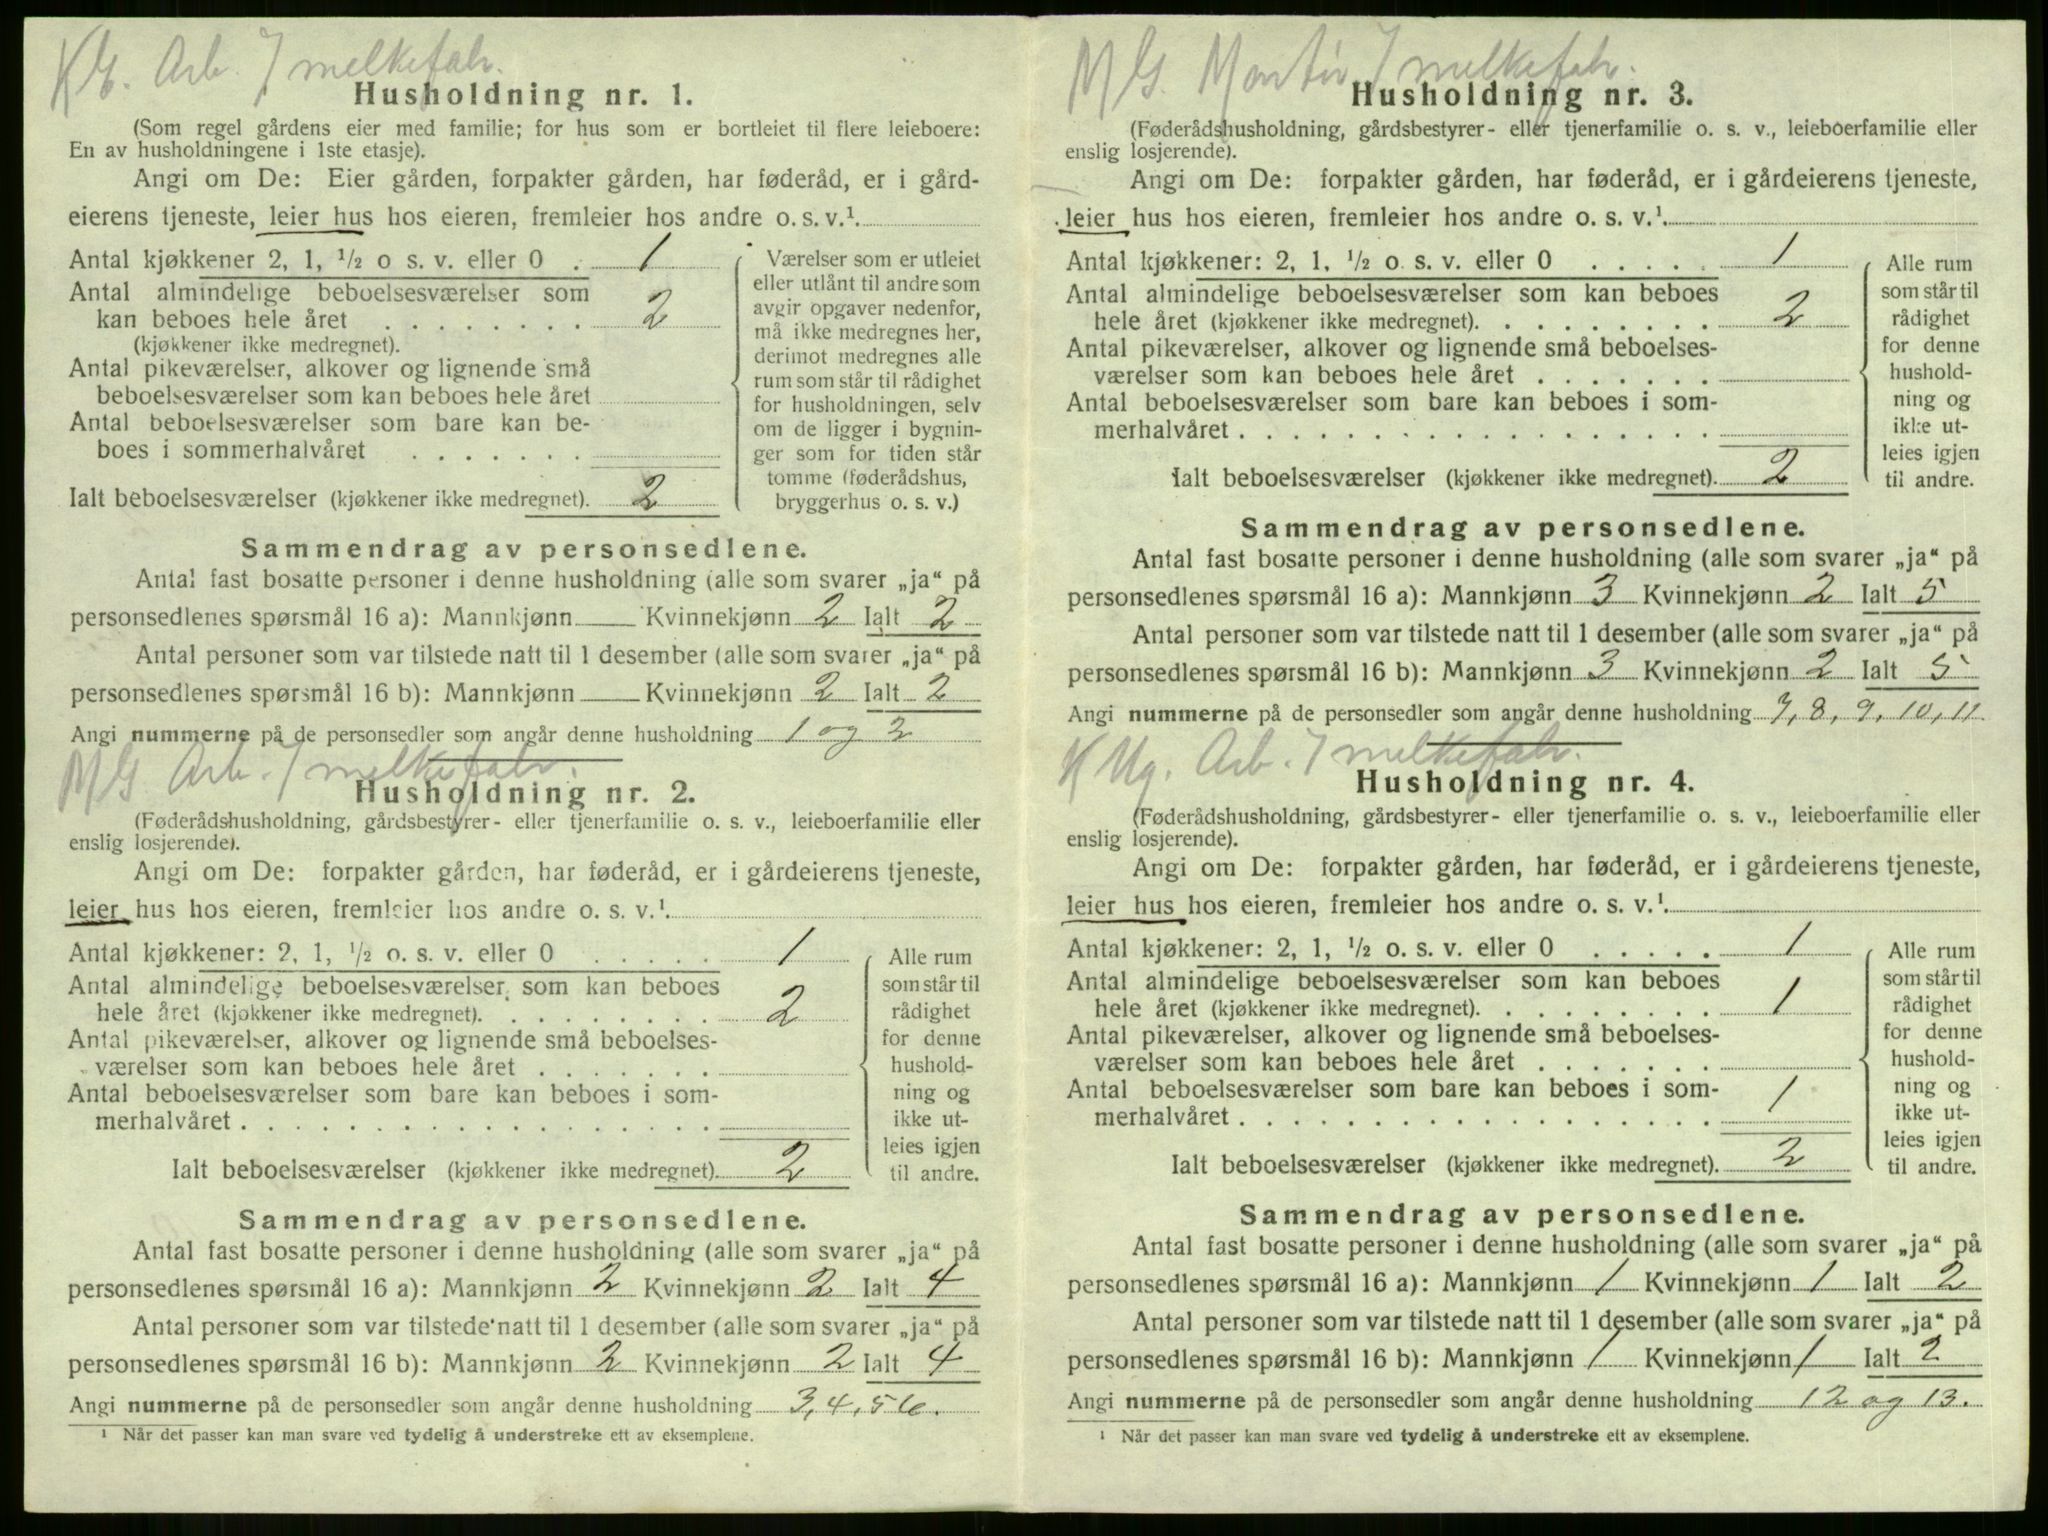 KG. Arb. I melkefabr.
Husholdning nr. 1.
(Som regel gårdens eier med familie; for hus som er bortleiet til flere leieboere:
En av husholdningene i 1ste etasje).
Angi om De: Eier gården, forpakter gården, har føderåd, er i gård-
eierens tjeneste, leier hus hos eieren, fremleier hos andre o. s. v.¹
Antal kjøkkener 2, 1, ½ o s. v. eller 0 . 1
Antal almindelige beboelsesværelser som
kan beboes hele året . . . . . . . . 2
(kjøkkener ikke medregnet).
Antal pikeværelser, alkover og lignende små
beboelsesværelser som kan beboes hele året
Antal beboelsesværelser som bare kan be-
boes i sommerhalvåret . . . . . . .
Ialt beboelsesværelser (kjøkkener ikke medregnet). 2
Værelser som er utleiet
eller utlånt til andre som
avgir opgaver nedenfor,
må ikke medregnes her,
derimot medregnes alle
rum som står til rådighet
for husholdningen, selv
om de ligger i bygnin-
ger som for tiden står
tomme (føderådshus,
bryggerhus o. s. v.)
Sammendrag av personsedlene.
Antal fast bosatte personer i denne husholdning (alle som svarer „ja“ på
personsedlenes spørsmål 16 a): Mannkjønn — Kvinnekjønn 2 Ialt 2
Antal personer som var tilstede natt til 1 desember (alle som svarer „ja“ på
personsedlenes spørsmål 16 b): Mannkjønn — Kvinnekjønn 2 Ialt 2
Angi nummerne på de personsedler som angår denne husholdning 1 og 2
MG Arb. I melkefabr.
Husholdning nr. 2.
(Føderådshusholdning, gårdsbestyrer- eller tjenerfamilie o. s. v., leieboerfamilie eller
enslig losjerende).
Angi om De: forpakter gården, har føderåd, er i gårdeierens tjeneste,
leier hus hos eieren, fremleier hos andre o. s. v.¹
Antal kjøkkener: 2, 1, ½ o. s. v. eller 0 . . . . . 1
Antal almindelige beboelsesværelser som kan beboes
hele året (kjøkkener ikke medregnet). . . . . . . . . 2
Antal pikeværelser, alkover og lignende små beboelses-
værelser som kan beboes hele året . . . . . . .
Antal beboelsesværelser som bare kan beboes i som-
merhalvåret . . . . . . . . . . . . . . . . . .
Ialt beboelsesværelser (kjøkkener ikke medregnet). 2
Alle rum
som står til
rådighet
for denne
hushold-
ning og
ikke ut-
leies igjen
til andre.
Sammendrag av personsedlene.
Antal fast bosatte personer i denne husholdning (alle som svarer „ja“ på
personsedlenes spørsmål 16 a): Mannkjønn 2 Kvinnekjønn 2 Ialt 4
Antal personer som var tilstede natt til 1 desember (alle som svarer „ja“ på
personsedlenes spørsmål 16 b): Mannkjønn 2 Kvinnekjønn 2 Ialt 4
Angi nummerne på de personsedler som angår denne husholdning 3, 4, 5 6.
¹ Når det passer kan man svare ved tydelig å understreke ett av eksemplene.
MG. Montør I melkefabr.
Husholdning nr. 3.
(Føderådshusholdning, gårdsbestyrer- eller tjenerfamilie o. s. v., leieboerfamilie eller
enslig losjerende).
Angi om De: forpakter gården, har føderåd, er i gårdeierens tjeneste,
leier hus hos eieren, fremleier hos andre o. s. v.¹
Antal kjøkkener: 2, 1, ½ o. s. v. eller 0 . . . . . 1
Antal almindelige beboelsesværelser som kan beboes
hele året (kjøkkener ikke medregnet). . . . . . . . . 2
Antal pikeværelser, alkover og lignende små beboelses-
værelser som kan beboes hele året . . . . . . .
Antal beboelsesværelser som bare kan beboes i som-
merhalvåret . . . . . . . . . . . . . . . . . .
Ialt beboelsesværelser (kjøkkener ikke medregnet). 2
Alle rum
som står til
rådighet
for denne
hushold-
ning og
ikke ut-
leies igjen
til andre.
Sammendrag av personsedlene.
Antal fast bosatte personer i denne husholdning (alle som svarer „ja“ på
personsedlenes spørsmål 16 a): Mannkjønn 3 Kvinnekjønn 2 Ialt 5
Antal personer som var tilstede natt til 1 desember (alle som svarer „ja“ på
personsedlenes spørsmål 16 b): Mannkjønn 3 Kvinnekjønn 2 Ialt 5
Angi nummerne på de personsedler som angår denne husholdning 7, 8, 9, 10, 11.
K Ug. Arb. I melkefabr.
Husholdning nr. 4.
(Føderådshusholdning, gårdsbestyrer- eller tjenerfamilie o. s. v., leieboerfamilie eller
enslig losjerende).
Angi om De: forpakter gården, har føderåd, er i gårdeierens tjeneste,
leier hus hos eieren, fremleier hos andre o. s. v.¹
Antal kjøkkener: 2, 1, ½ o. s. v. eller 0 . . . . . 1
Antal almindelige beboelsesværelser som kan beboes
hele året (kjøkkener ikke medregnet). . . . . . . . . 1
Antal pikeværelser, alkover og lignende små beboelses-
værelser som kan beboes hele året . . . . . . .
Antal beboelsesværelser som bare kan beboes i som-
merhalvåret . . . . . . . . . . . . . . . . . . 1
Ialt beboelsesværelser (kjøkkener ikke medregnet). 2
Alle rum
som står til
rådighet
for denne
hushold-
ning og
ikke ut-
leies igjen
til andre.
Sammendrag av personsedlene.
Antal fast bosatte personer i denne husholdning (alle som svarer „ja“ på
personsedlenes spørsmål 16 a): Mannkjønn 1 Kvinnekjønn 1 Ialt 2
Antal personer som var tilstede natt til 1 desember (alle som svarer „ja“ på
personsedlenes spørsmål 16 b): Mannkjønn 1 Kvinnekjønn 1 Ialt 2
Angi nummerne på de personsedler som angår denne husholdning 12 og 13.
¹ Når det passer kan man svare ved tydelig å understreke ett av eksemplene.